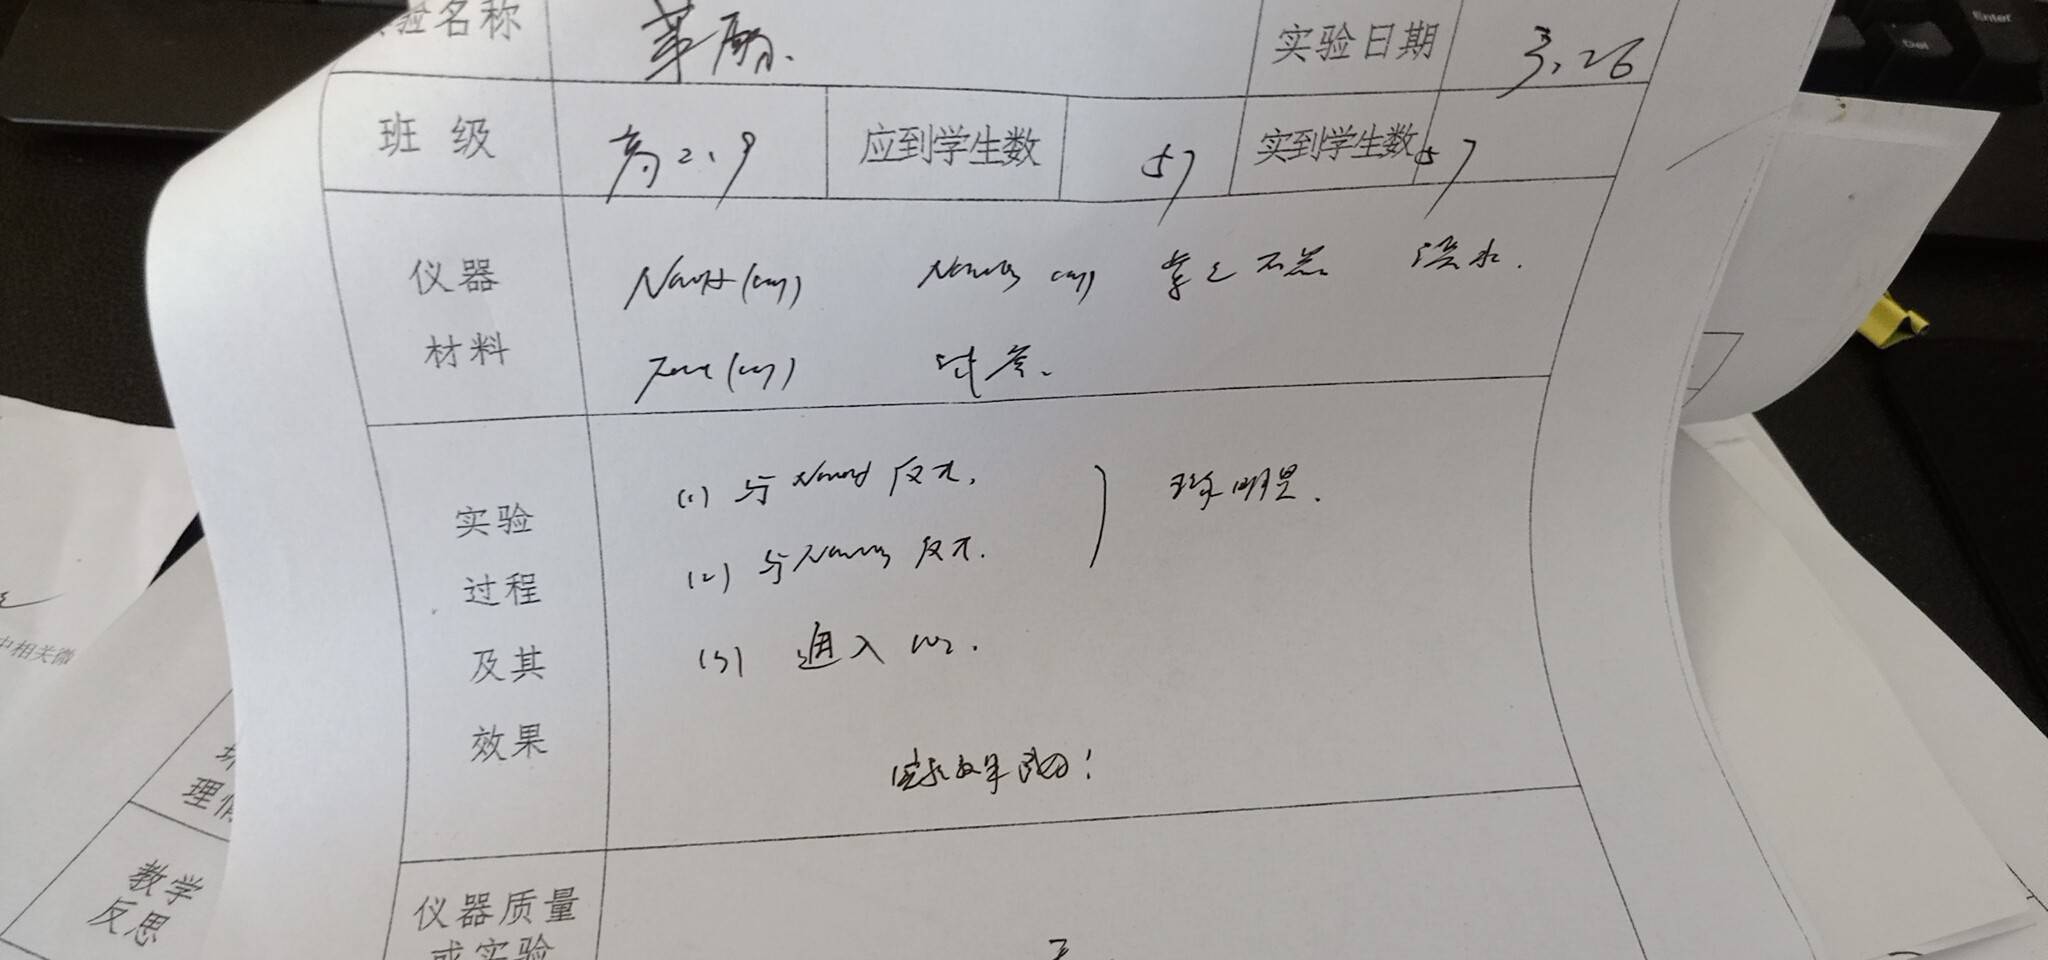 验名称 苯酚. 实验日期 3.26
班 级 高2.9 应到学生数 57 实到学生数 57
仪器 NaOH(aq) 紫色石蕊 溴水.
材料 试管.
实验 (1) 与NaOH反应. 现象明显.
过程 (2) 与 反应.
及其 (3) 通入CO2.
效果 实验效果
仪器质量
或实验 无
中相关微
理情
教学
反思
Enter
Del